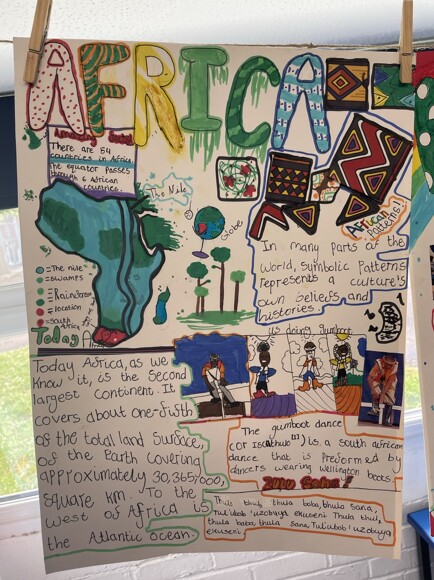 AFRICA
Amazing facts!
There are 54
countries in Africa.
the equator passes
through 6 African
countries.
The Nile
Globe
African
Patterns!
In many parts of the
world, symbolic Patterns
represents a culture's
own beliefs and
histories.
= The nile
= swamps
= Rainforest
= location
= South
Africa
Today
us doing gumboot
Today Africa, as we
know it, is the Second
largest continent. It
covers about one-fifth
of the total land Surface,
of the Earth covering
approximately 30,365,000,
square km. To the
west of Africa is
the Atlantic ocean.
The gumboot dance
(or Iscathulo [1]) is a south african
dance that is preformed by
dancers wearing wellington boots.
Thula thul, thula baba, thula sana,
Tul'ubob 'uzobuya ekuseni Thula thul,
thula baba, thula sana, Tul'ubob 'uzobuya
ekuseni